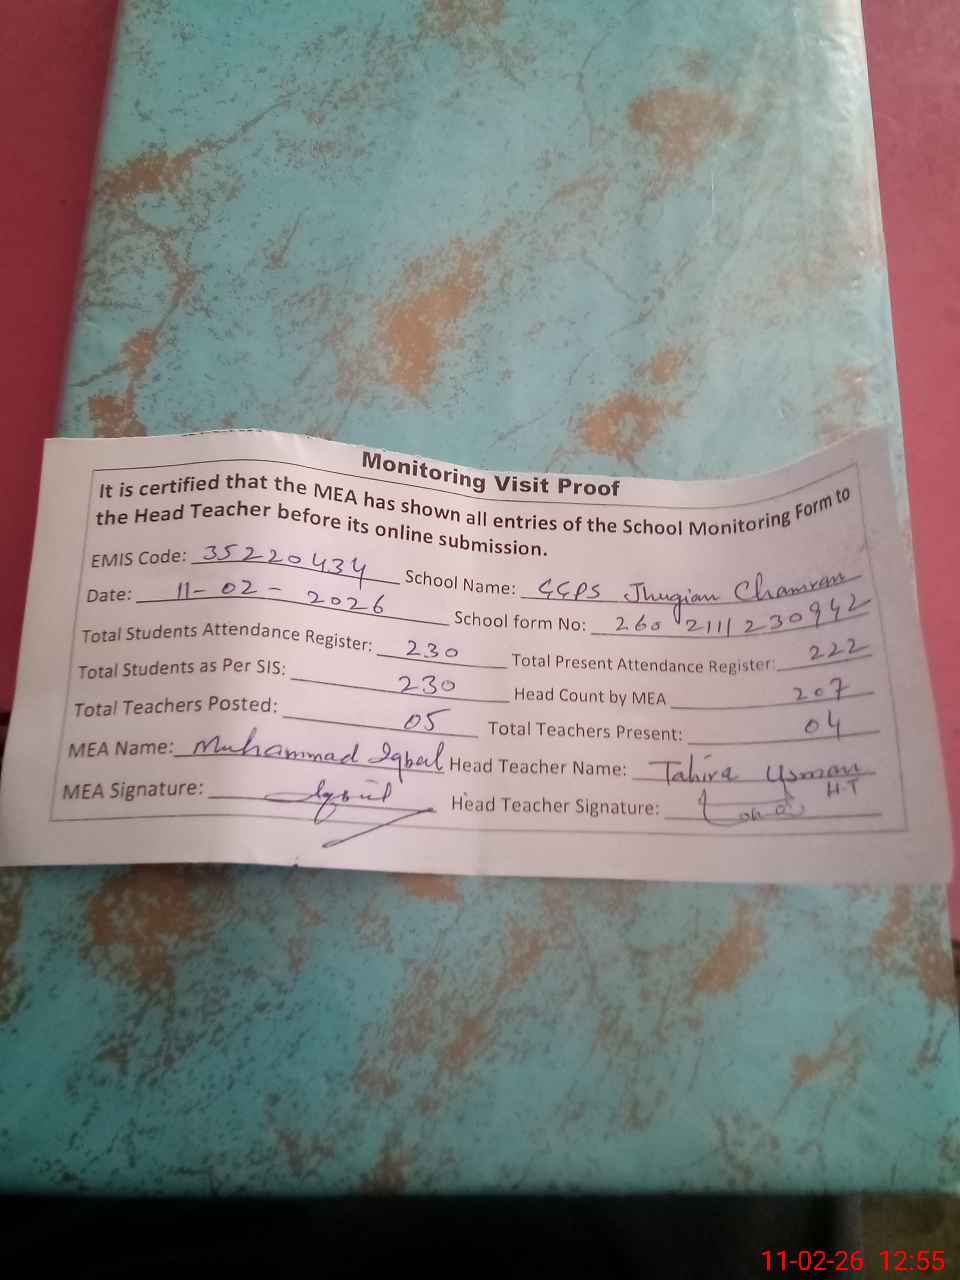 Monitoring Visit Proof
It is certified that the MEA has shown all entries of the School Monitoring Form to
the Head Teacher before its online submission.
EMIS Code: 35220434 School Name: GGPS Jhugian Chamran
Date: 11-02-2026 School form No: 260 2111230942
Total Students Attendance Register: 230 Total Present Attendance Register: 222
Total Students as Per SIS: 230 Head Count by MEA 207
Total Teachers Posted: 05 Total Teachers Present: 04
MEA Name: Muhammad Iqbal Head Teacher Name: Tahira Usman
H.T
MEA Signature: Iqbal Head Teacher Signature:
11-02-26 12:55